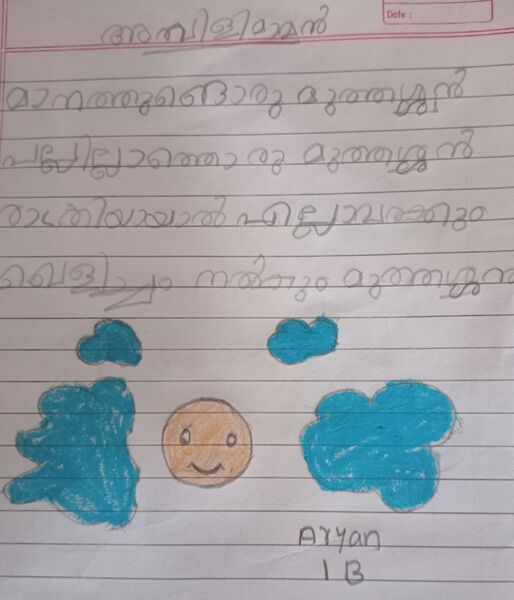 Date :
അമ്പിളിമാമൻ
മാനത്തുണ്ടൊരു മുത്തശ്ശൻ
പല്ലില്ലാത്തൊരു മുത്തശ്ശൻ
രാത്രിയായാൽ എല്ലാവർക്കും
വെളിച്ചം നൽകും മുത്തശ്ശൻ
Aryan
1 B